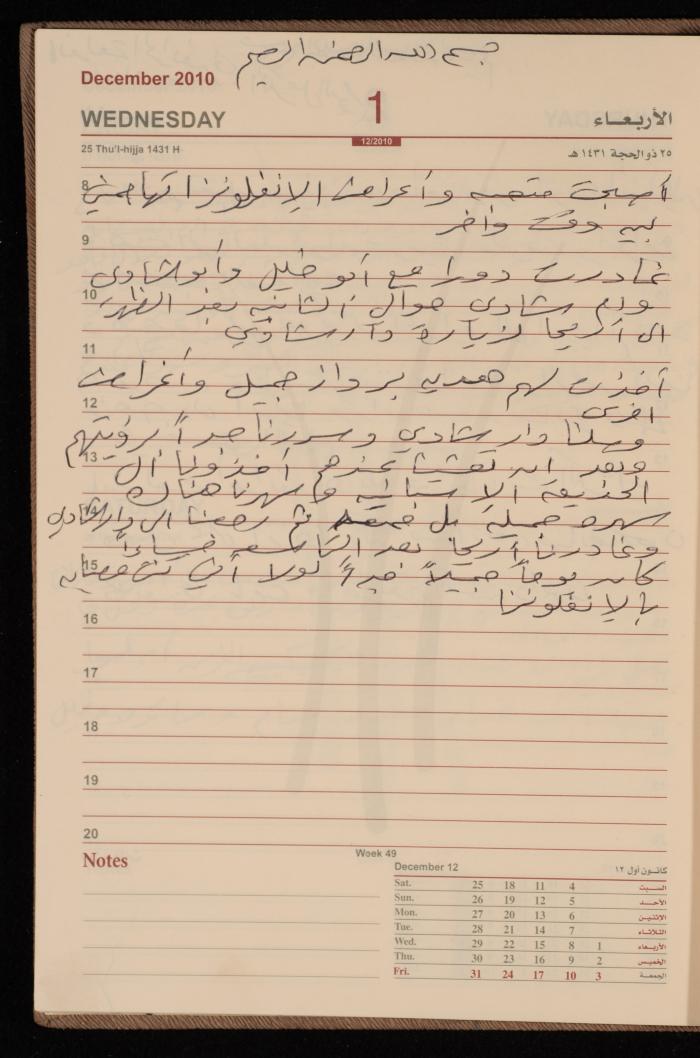 بسم الله الرحمن الرحيم
December 2010
WEDNESDAY
1
الأربعاء
12/2010
25 Thu'l-hijja 1431 H
٢٥ ذو الحجة ١٤٣١ هـ
8
أصبحت متعبه وأعراض الإنفلونزا تهاجمني
بين وقت وآخر
9
غادرت دورا مع أبو خليل وأبو شادي
10
وأم شادي حوالي الثانيه بعد الظهر
الى أريحا لزيارة دار شادي
11
أخذت لهم هديه برواز جميل وأغراض
12
أخرى
وصلنا دار شادي وسررنا جداً برؤيتهم
13
وبعد ان تغدينا عندهم أخذونا الى
الحديقة الإسبانيه وسهرنا هناك
14
سهره جميله ثم رجعنا الى دار شادي
وغادرنا أريحا بعد التاسعه مساءاً
15
كان يوماً جميلاً لولا أني كنت مصابه
بالإنفلونزا
16
17
18
19
20
Notes
Week 49
December 12
كانون أول ١٢
Sat. 25 18 11 4 السبت
Sun. 26 19 12 5 الأحد
Mon. 27 20 13 6 الإثنين
Tue. 28 21 14 7 الثلاثاء
Wed. 29 22 15 8 1 الأربعاء
Thu. 30 23 16 9 2 الخميس
Fri. 31 24 17 10 3 الجمعة